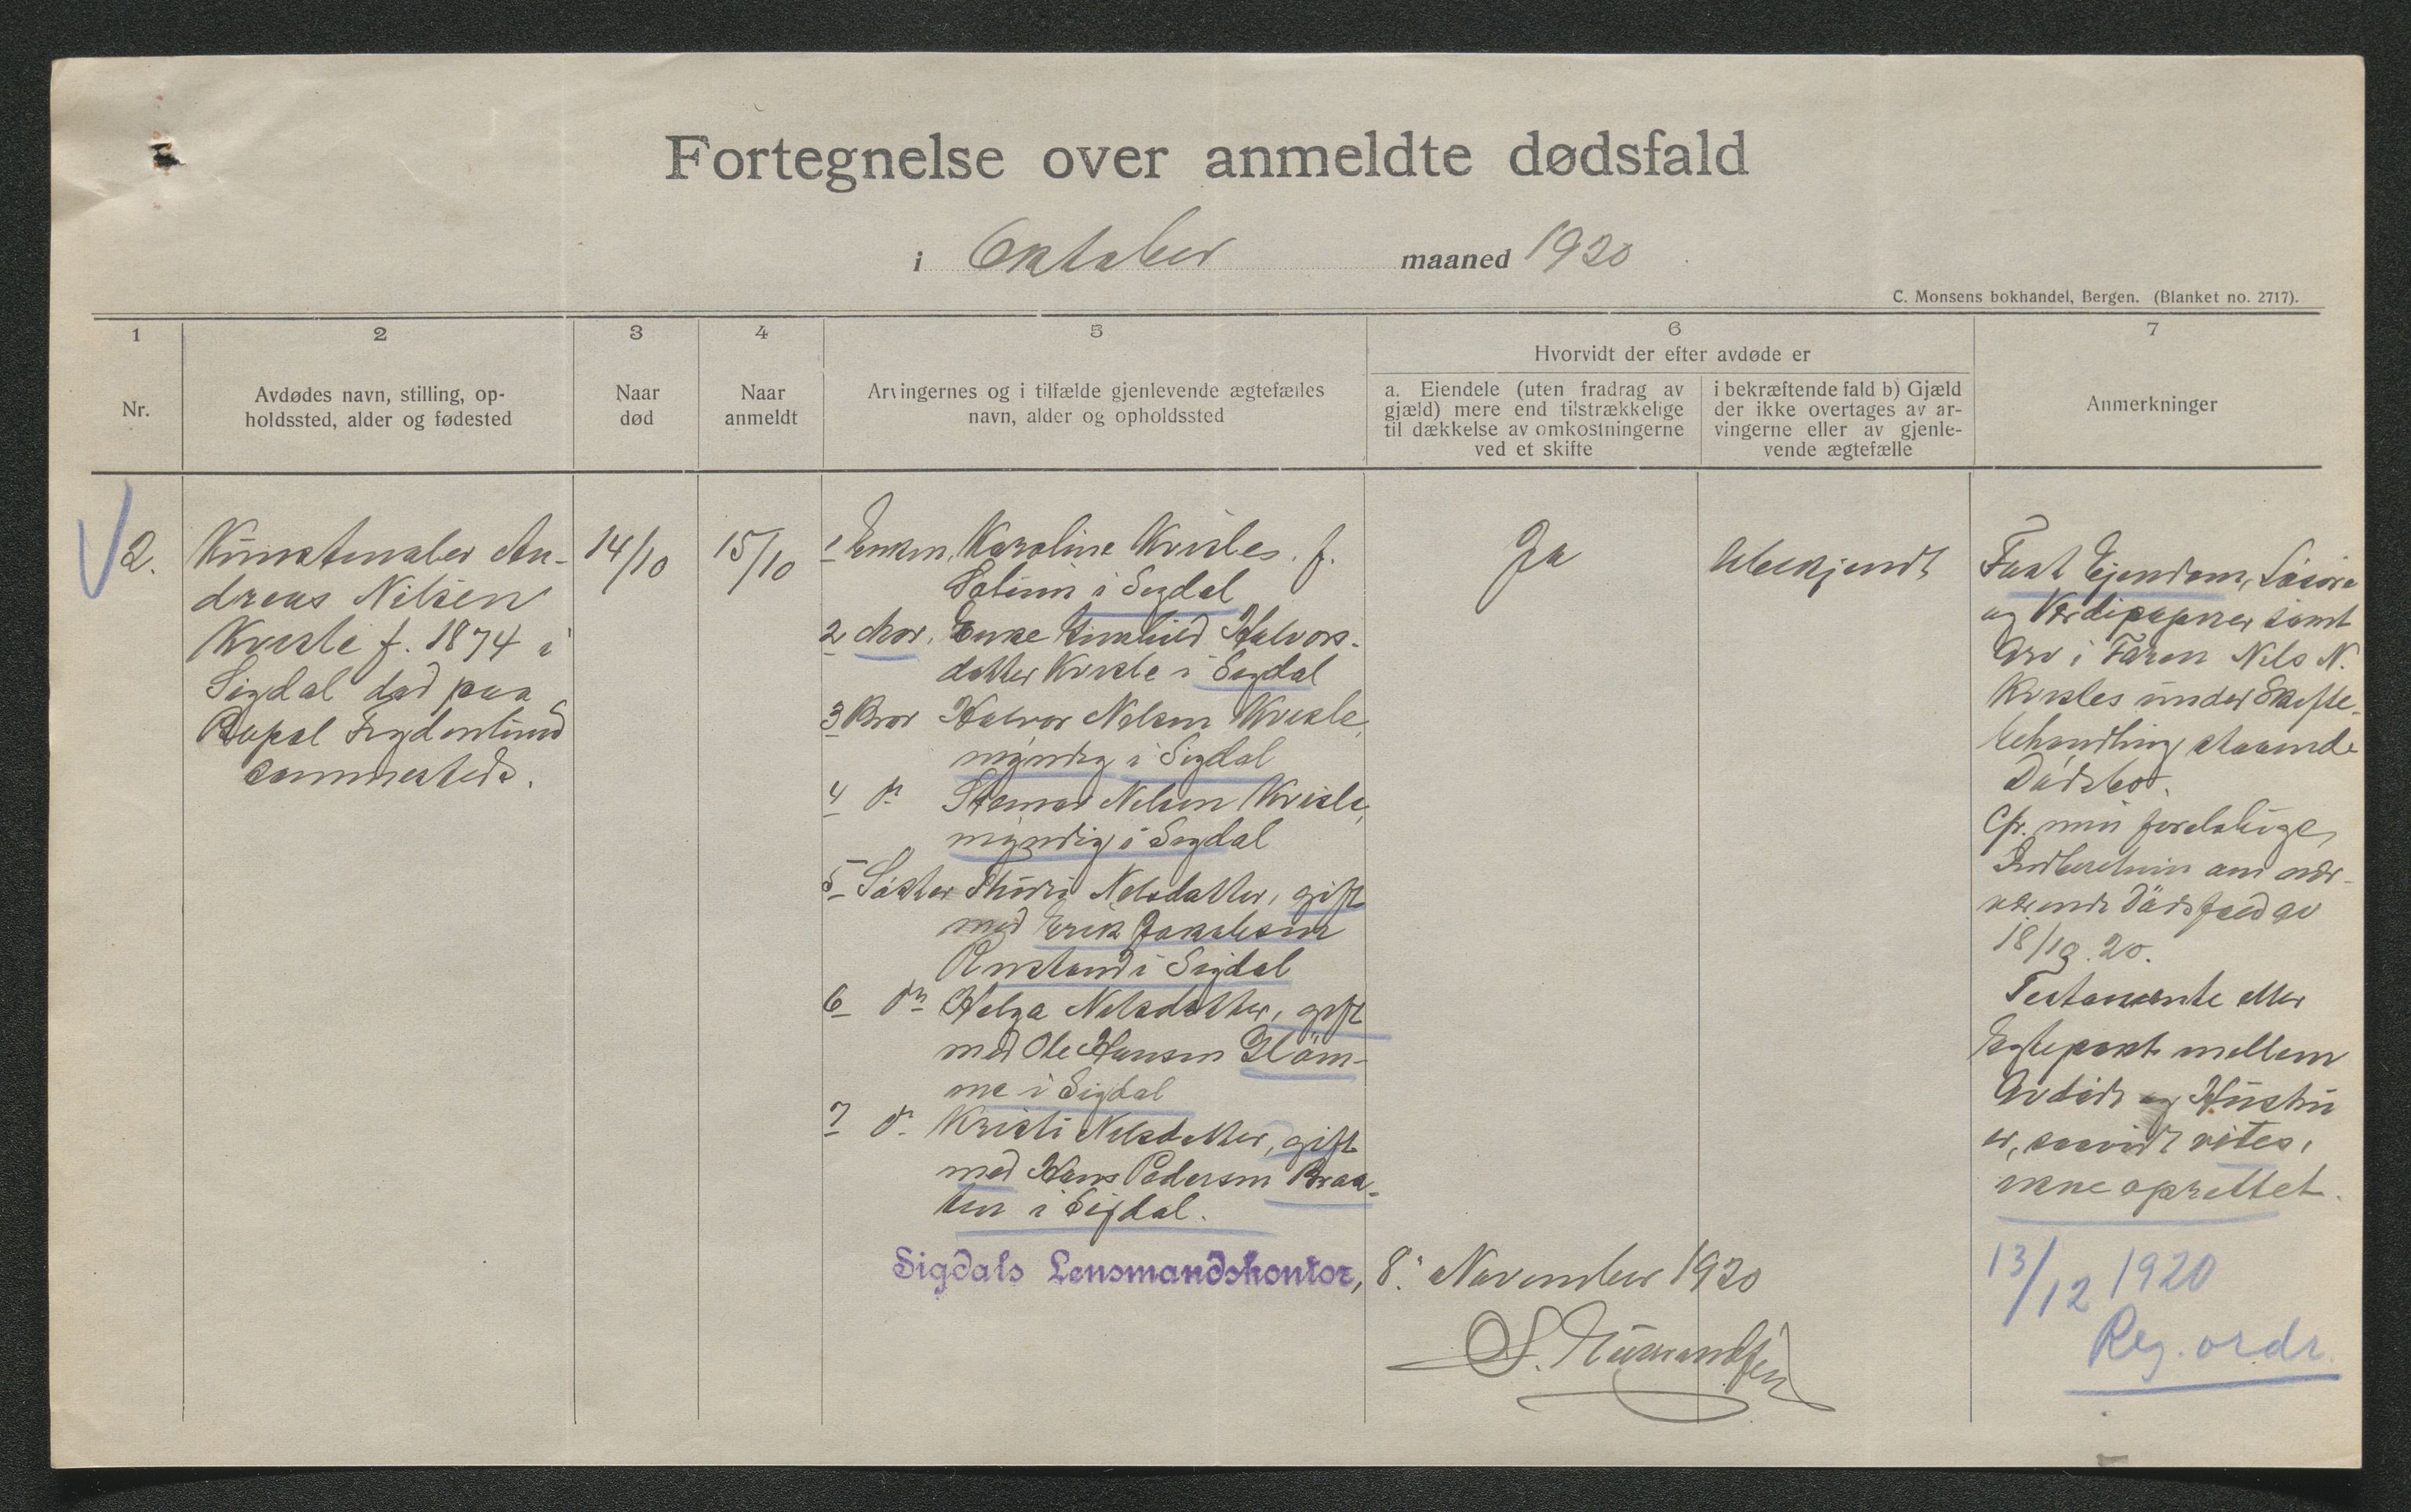 Fortegnelse over anmeldte dødsfald
i Oktober maaned 1920
C. Monsens bokhandel, Bergen. (Blanket no. 2717).
1
2
3
4
5
6
7
Nr.
Avdødes navn, stilling, op-
holdssted, alder og fødested
Naar
død
Naar
anmeldt
Arvingernes og i tilfælde gjenlevende ægtefælles
navn, alder og opholdssted
Hvorvidt der efter avdøde er
a. Eiendele (uten fradrag av
gjæld) mere end tilstrækkelige
til dækkelse av omkostningerne
ved et skifte
i bekræftende fald b) Gjæld
der ikke overtages av ar-
vingerne eller av gjenle-
vende ægtefælle
Anmerkninger
2.
Kunstmaler An-
dreas Nilsen
Kvisle f. 1874 i
Sigdal död paa
Frydenlund
sammesteds.
14/10
15/10
1 Enken, Karoline Kvisles f.
i Sigdal
2 Mor, Enke Gunhild Halvors-
datter Kvisle i Sigdal
3 Bror Halvor Nilsen Kvisle,
myndig i Sigdal
4 do Steinar Nilsen Kvisle,
myndig i Sigdal
5 Söster Thuri Nilsdatter, gift
med Erik Jakobsen
i Sigdal
6 do Helga Nilsdatter, gift
med Ole Hansen Glöm-
me i Sigdal
7 do Kristi Nilsdatter, gift
med Hans Pedersen Braa-
ten i Sigdal.
Ja
Ubekjendt
Fast Ejendom, Lösöre
og Værdipapirer samt
Arv i Faren Nils N.
Kvisles under Skifte-
behandling staaende
Dödsbo.
Cfr. min forelöbige
Indberetning om nær-
værende Dödsfald av
18/10.20.
Testamente eller
Egtepakt mellem
Avdöde og Hustru
er, saavidt vites,
ikke oprettet.
Sigdals Lensmandskontor, 8. November 1920
13/12 1920
Reg. ordr.